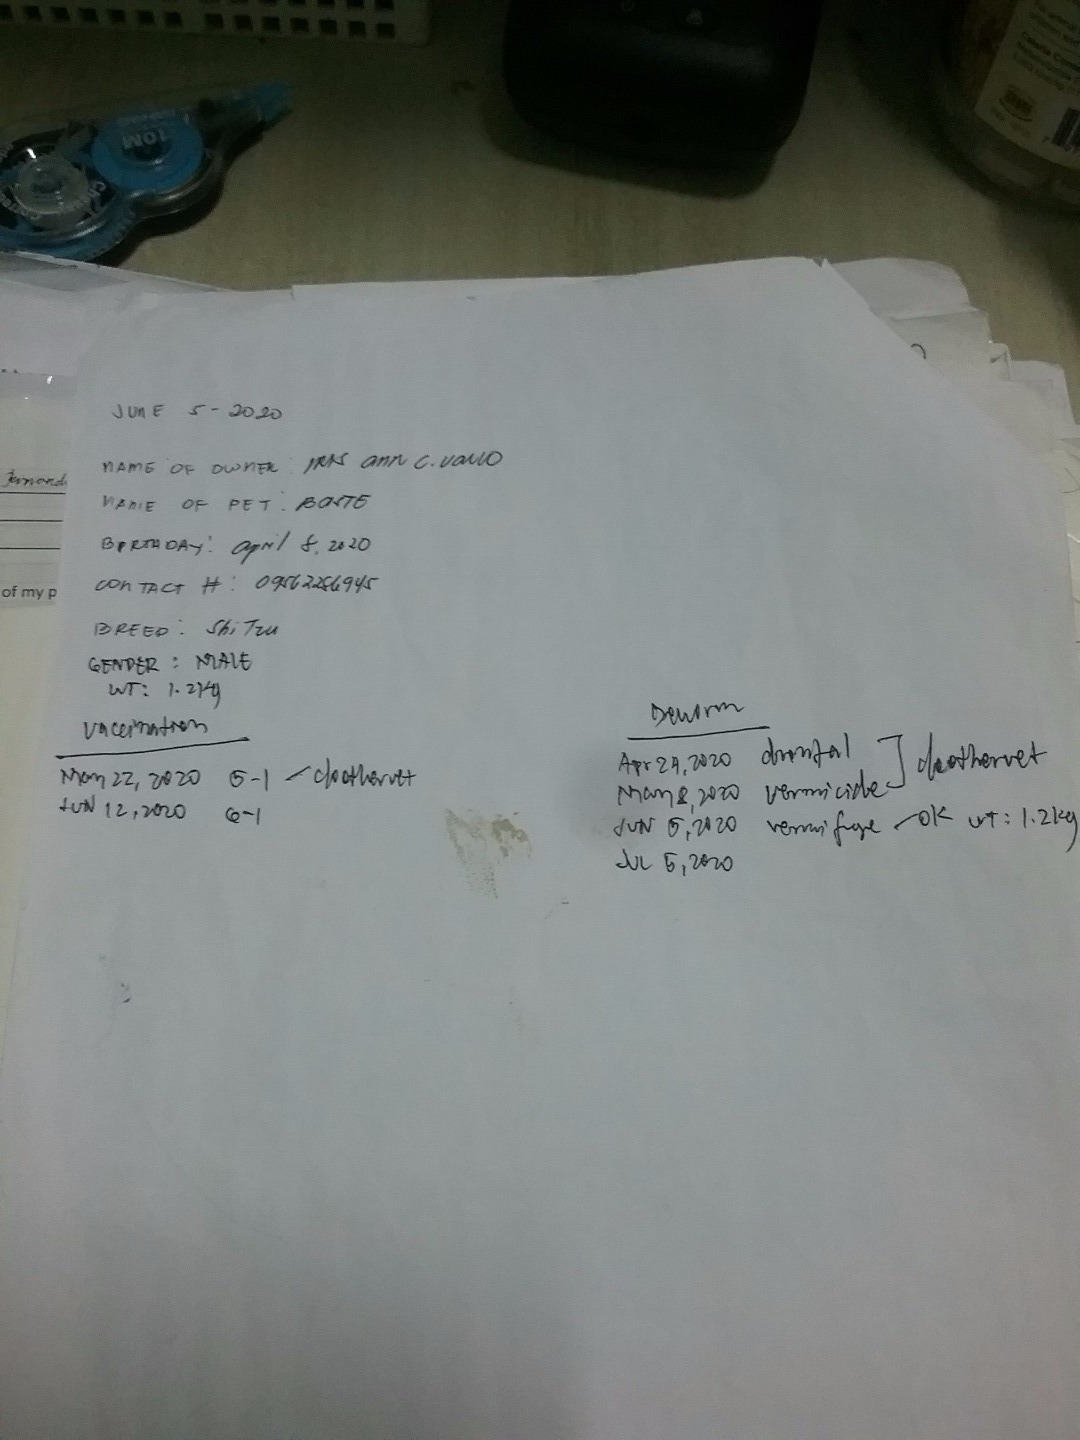 10M
JUNE 5-2020
NAME OF OWNER: ANN C.
NAME OF PET: BASTE
BIRTHDAY: april 8, 2020
CONTACT #: 09562256945
BREED: Shi Tzu
GENDER: MALE
WT: 1.2kg
Vaccination
May 22, 2020 5-1
JUN 12, 2020 6-1
Deworm
Apr 24, 2020 drontal
May 8, 2020 vermicide
JUN 5, 2020 vermifuge - OK wt: 1.2kg
JUL 5, 2020
of my p